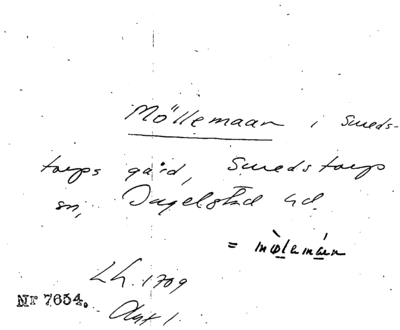 Möllemaan i Smeds-
torps gård, Smedstorp
sn, Ingelstad hd.
= mølemán
Lh. 1709
Nr 7654.